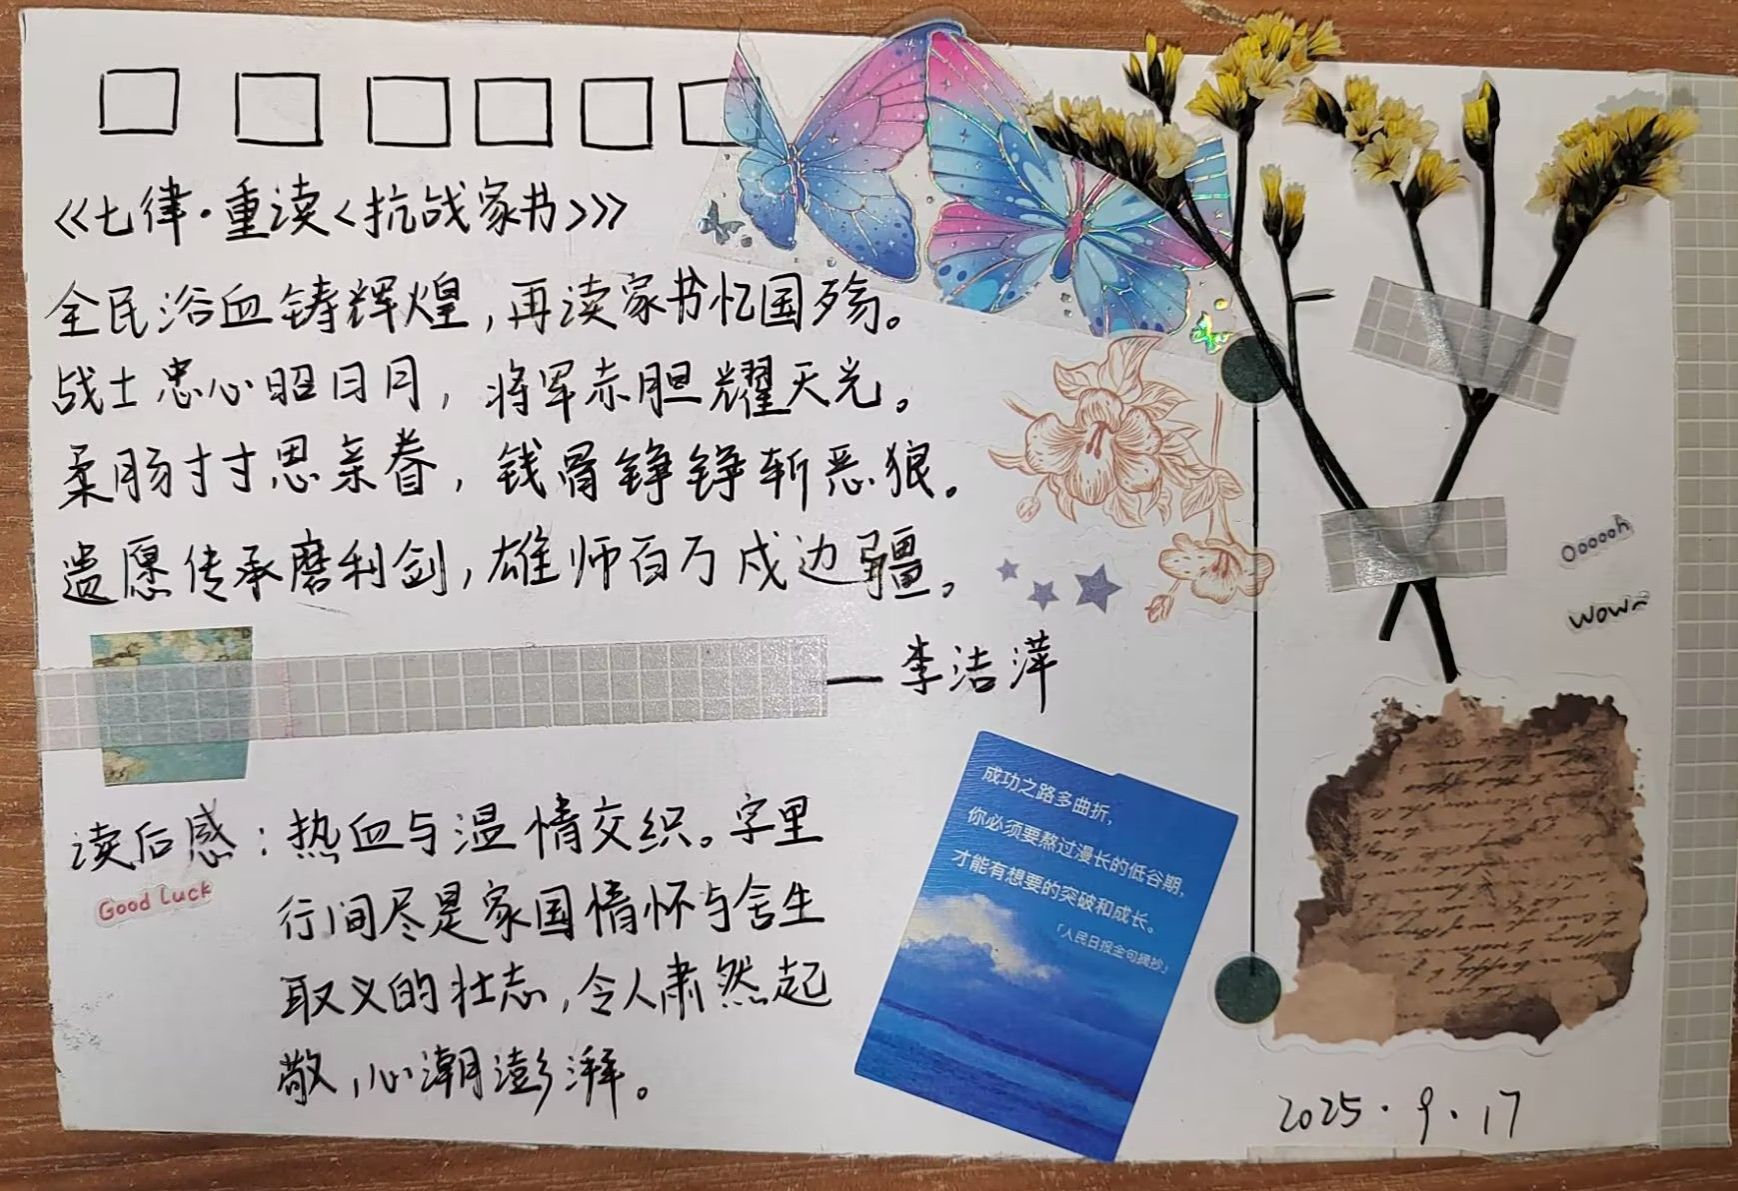 《七律·重读<抗战家书>》
全民浴血铸辉煌,再读家书忆国殇。
战士忠心昭日月,将军赤胆耀天光。
柔肠寸寸思亲眷,钱骨铮铮斩恶狼。
遗愿传承磨利剑,雄师百万戍边疆。
—李洁萍
读后感:热血与温情交织。字里
行间尽是家国情怀与舍生
取义的壮志,令人肃然起
敬,心潮澎湃。
Good Luck
成功之路多曲折,
你必须要熬过漫长的低谷期,
才能有想要的突破和成长。
「人民日报金句摘抄」
Oooooh
Wow~
2025.9.17